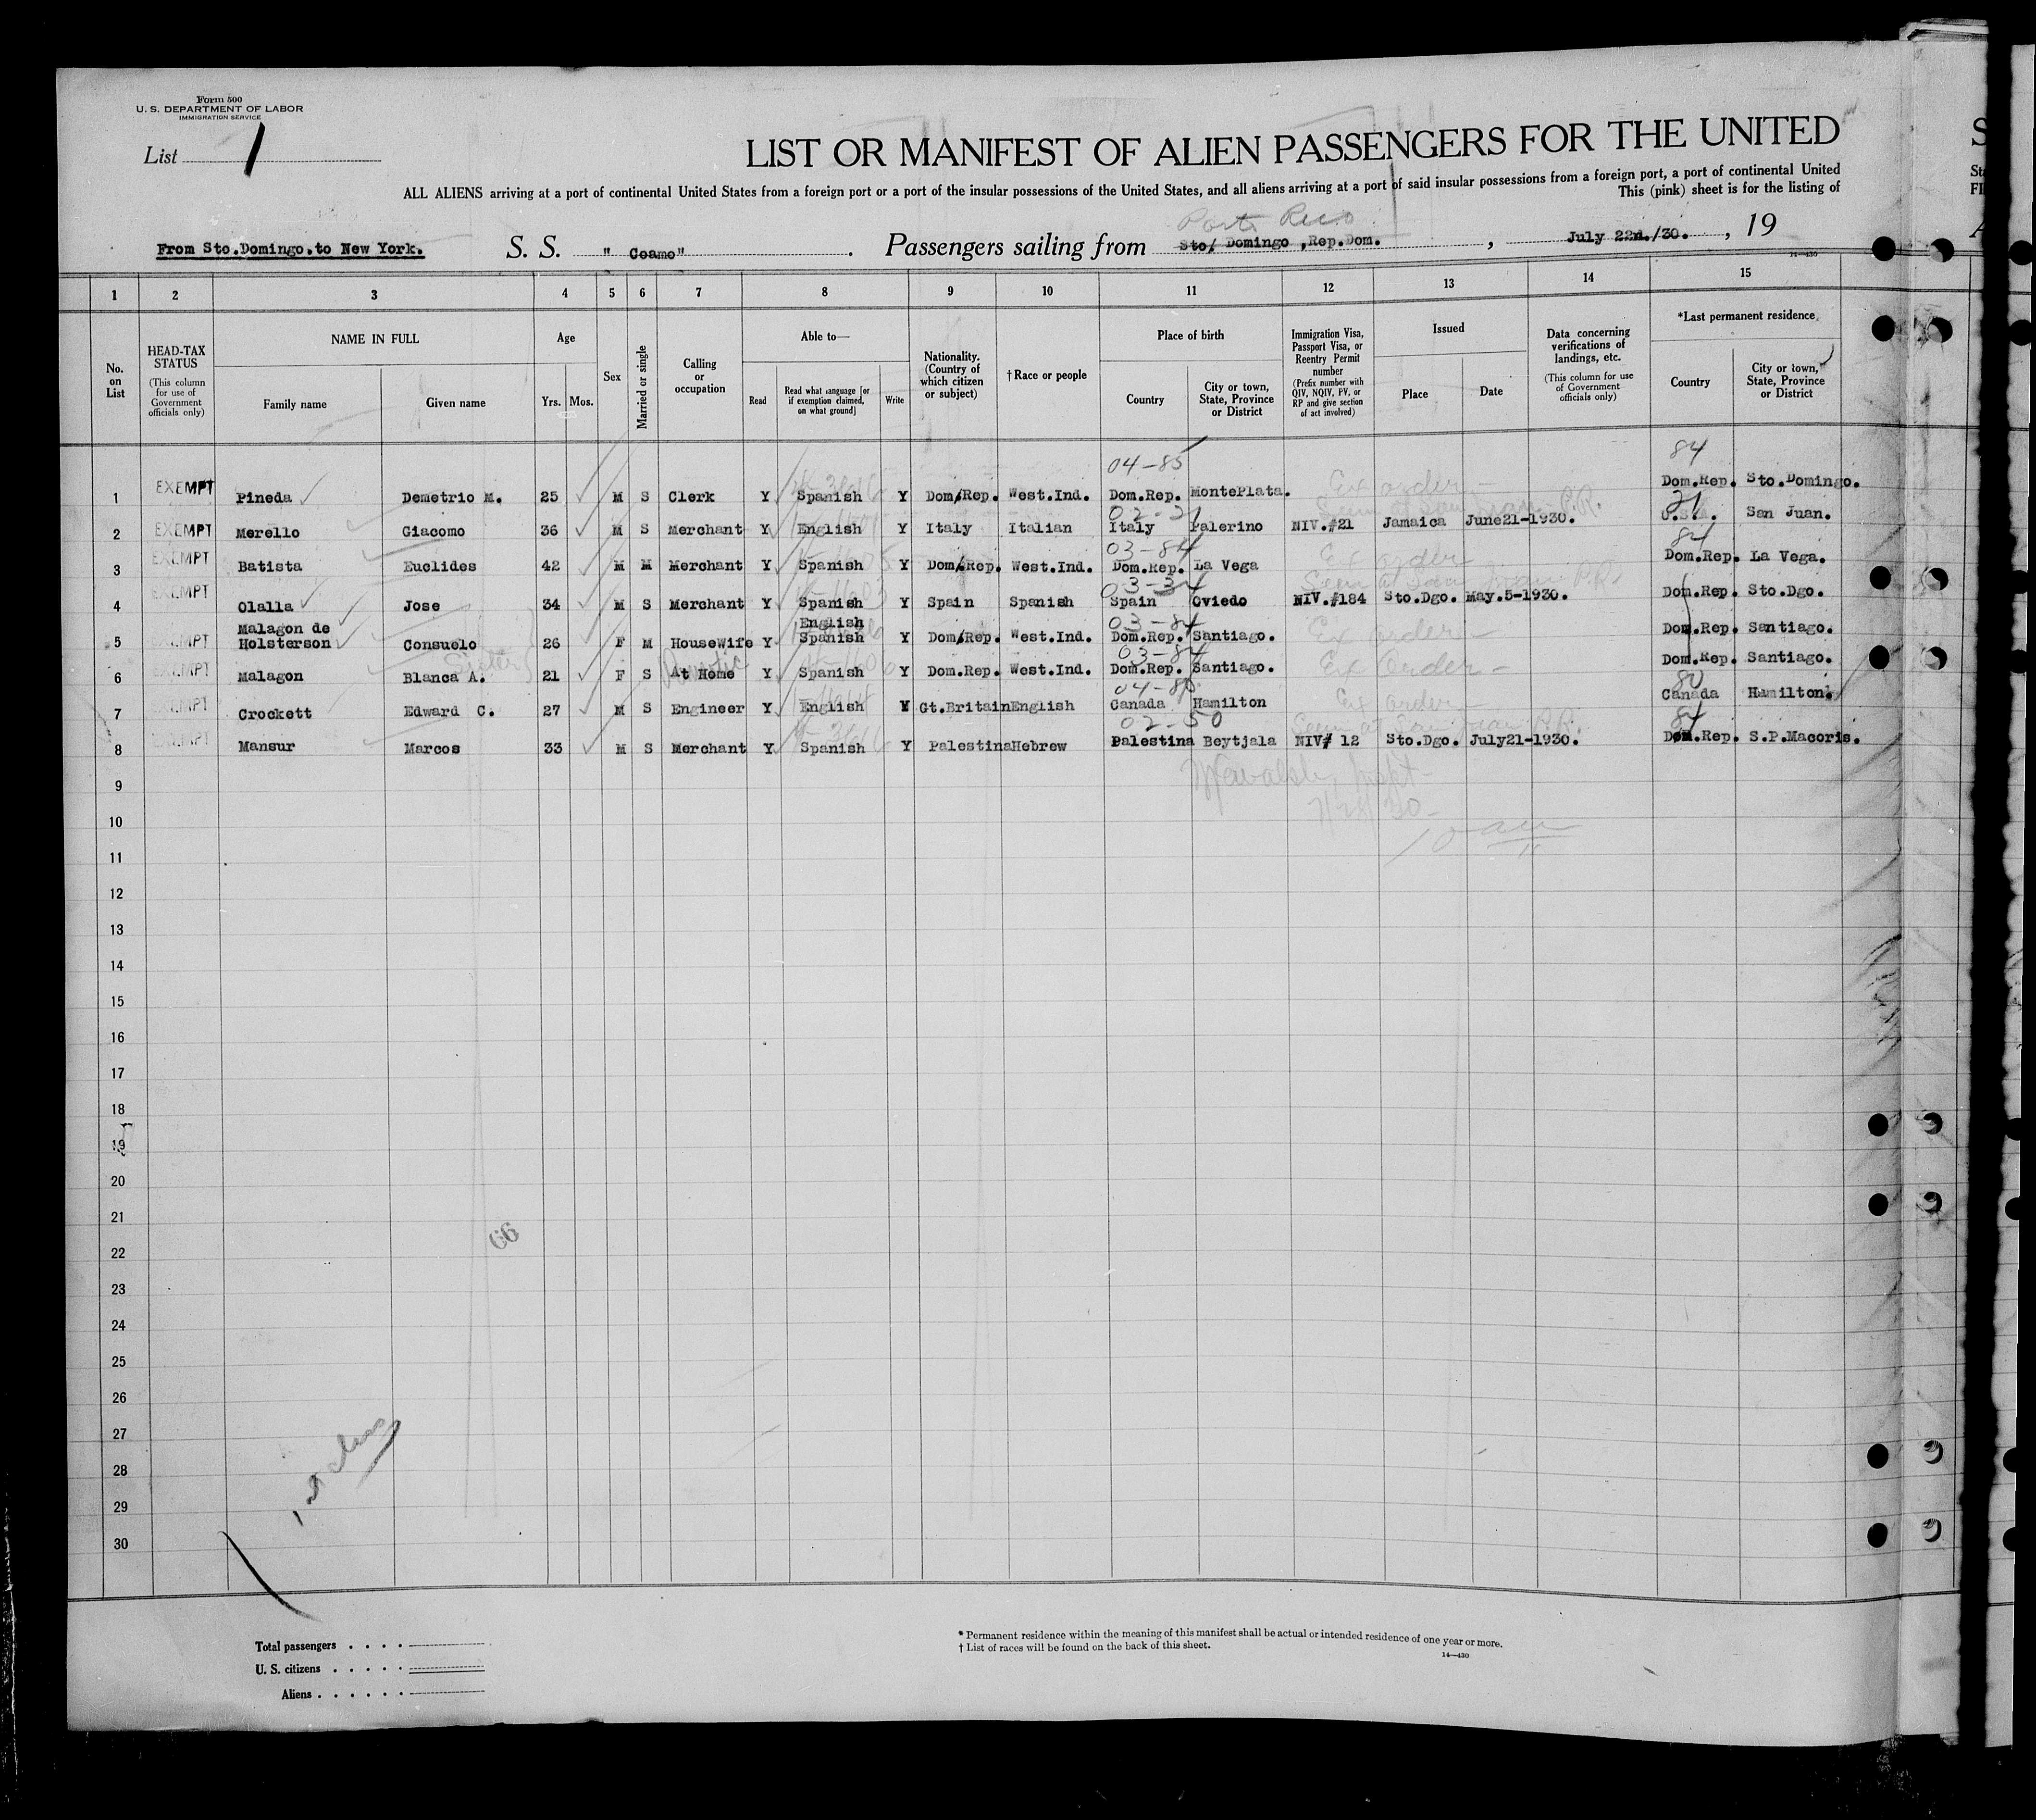 Form 500
U. S. DEPARTMENT OF LABOR
IMMIGRATION SERVICE
List 1
LIST OR MANIFEST OF ALIEN PASSENGERS FOR THE UNITED
ALL ALIENS arriving at a port of continental United States from a foreign port or a port of the insular possessions of the United States, and all aliens arriving at a port of said insular possessions from a foreign port, a port of continental United
This (pink) sheet is for the listing of
Porto Rico
From Sto.Domingo.to New York. S. S. " Coamo" . Passengers sailing from Sto/ Domingo ,Rep.Dom. , July 22d./30. , 19
14—430
1 2 3 4 5 6 7 8 9 10 11 12 13 14 15
No. on List
HEAD-TAX STATUS (This column for use of Government officials only)
NAME IN FULL Family name Given name
Age Yrs. Mos.
Sex
Married or single
Calling or occupation
Able to— Read Read what language [or if exemption claimed, on what ground] Write
Nationality. (Country of which citizen or subject)
† Race or people
Place of birth Country City or town, State, Province or District
Immigration Visa, Passport Visa, or Reentry Permit number (Prefix number with QIV, NQIV, PV, or RP and give section of act involved)
Issued Place Date
Data concerning verifications of landings, etc. (This column for use of Government officials only)
*Last permanent residence Country City or town, State, Province or District
04-85 84
1 EXEMPT Pineda Demetrio M. 25 M S Clerk Y Spanish Y Dom/Rep. West.Ind. Dom.Rep. MontePlata. Ex order - Dom.Rep. Sto.Domingo.
02-21 21
2 EXEMPT Merello Giacomo 36 M S Merchant Y English Y Italy Italian Italy Palerino NIV.#21 Jamaica June21-1930. U.S.A. San Juan.
03-84 84
3 EXEMPT Batista Euclides 42 M M Merchant Y Spanish Y Dom/Rep. West.Ind. Dom.Rep. La Vega Ex order Dom.Rep. La Vega.
03-34
4 EXEMPT Olalla Jose 34 M S Merchant Y Spanish Y Spain Spanish Spain Oviedo NIV.#184 Sto.Dgo. May.5-1930. Dom.Rep. Sto.Dgo.
Malagon de English 03-84
5 EXEMPT Holsterson Consuelo 26 F M HouseWife Y Spanish Y Dom/Rep. West.Ind. Dom.Rep. Santiago. Ex order - Dom.Rep. Santiago.
Sister Domestic 03-84
6 EXEMPT Malagon Blanca A. 21 F S At Home Y Spanish Y Dom.Rep. West.Ind. Dom.Rep. Santiago. Ex Order - Dom.Rep. Santiago.
04-80 80
7 EXEMPT Crockett Edward C. 27 M S Engineer Y English Y Gt.Britain English Canada Hamilton Ex order Canada Hamilton.
02-50 84
8 EXEMPT Mansur Marcos 33 M S Merchant Y Spanish Y Palestina Hebrew Palestina Beytjala NIV# 12 Sto.Dgo. July21-1930. Dom.Rep. S.P.Macoris.
9
10
11
12
13
14
15
16
17
18
19
20
21
22
23
24
25
26
27
28
29
30
66
Total passengers . . . .
U. S. citizens . . . . .
Aliens . . . . . .
* Permanent residence within the meaning of this manifest shall be actual or intended residence of one year or more.
† List of races will be found on the back of this sheet.
14—430